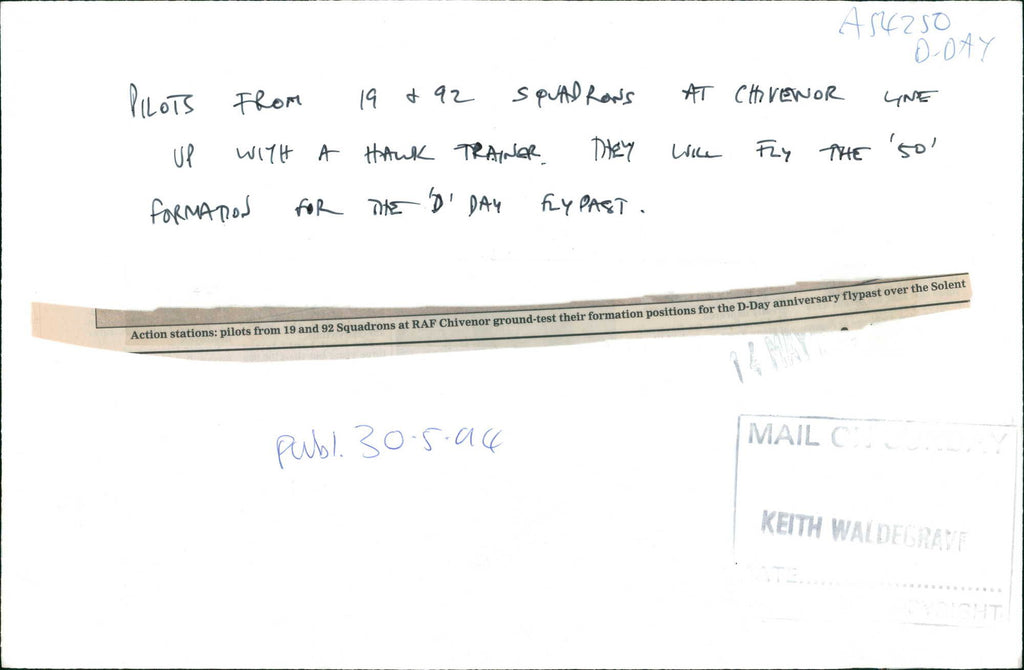 A54250
D-DAY
PILOTS FROM 19 & 92 SQUADRONS AT CHIVENOR LINE
UP WITH A HAWK TRAINER. THEY WILL FLY THE '50'
FORMATION FOR THE 'D' DAY FLYPAST.
Action stations: pilots from 19 and 92 Squadrons at RAF Chivenor ground-test their formation positions for the D-Day anniversary flypast over the Solent
14 MAY
publ. 30.5.94
MAIL ON SUNDAY
KEITH WALDEGRAVE
DATE
COPYRIGHT